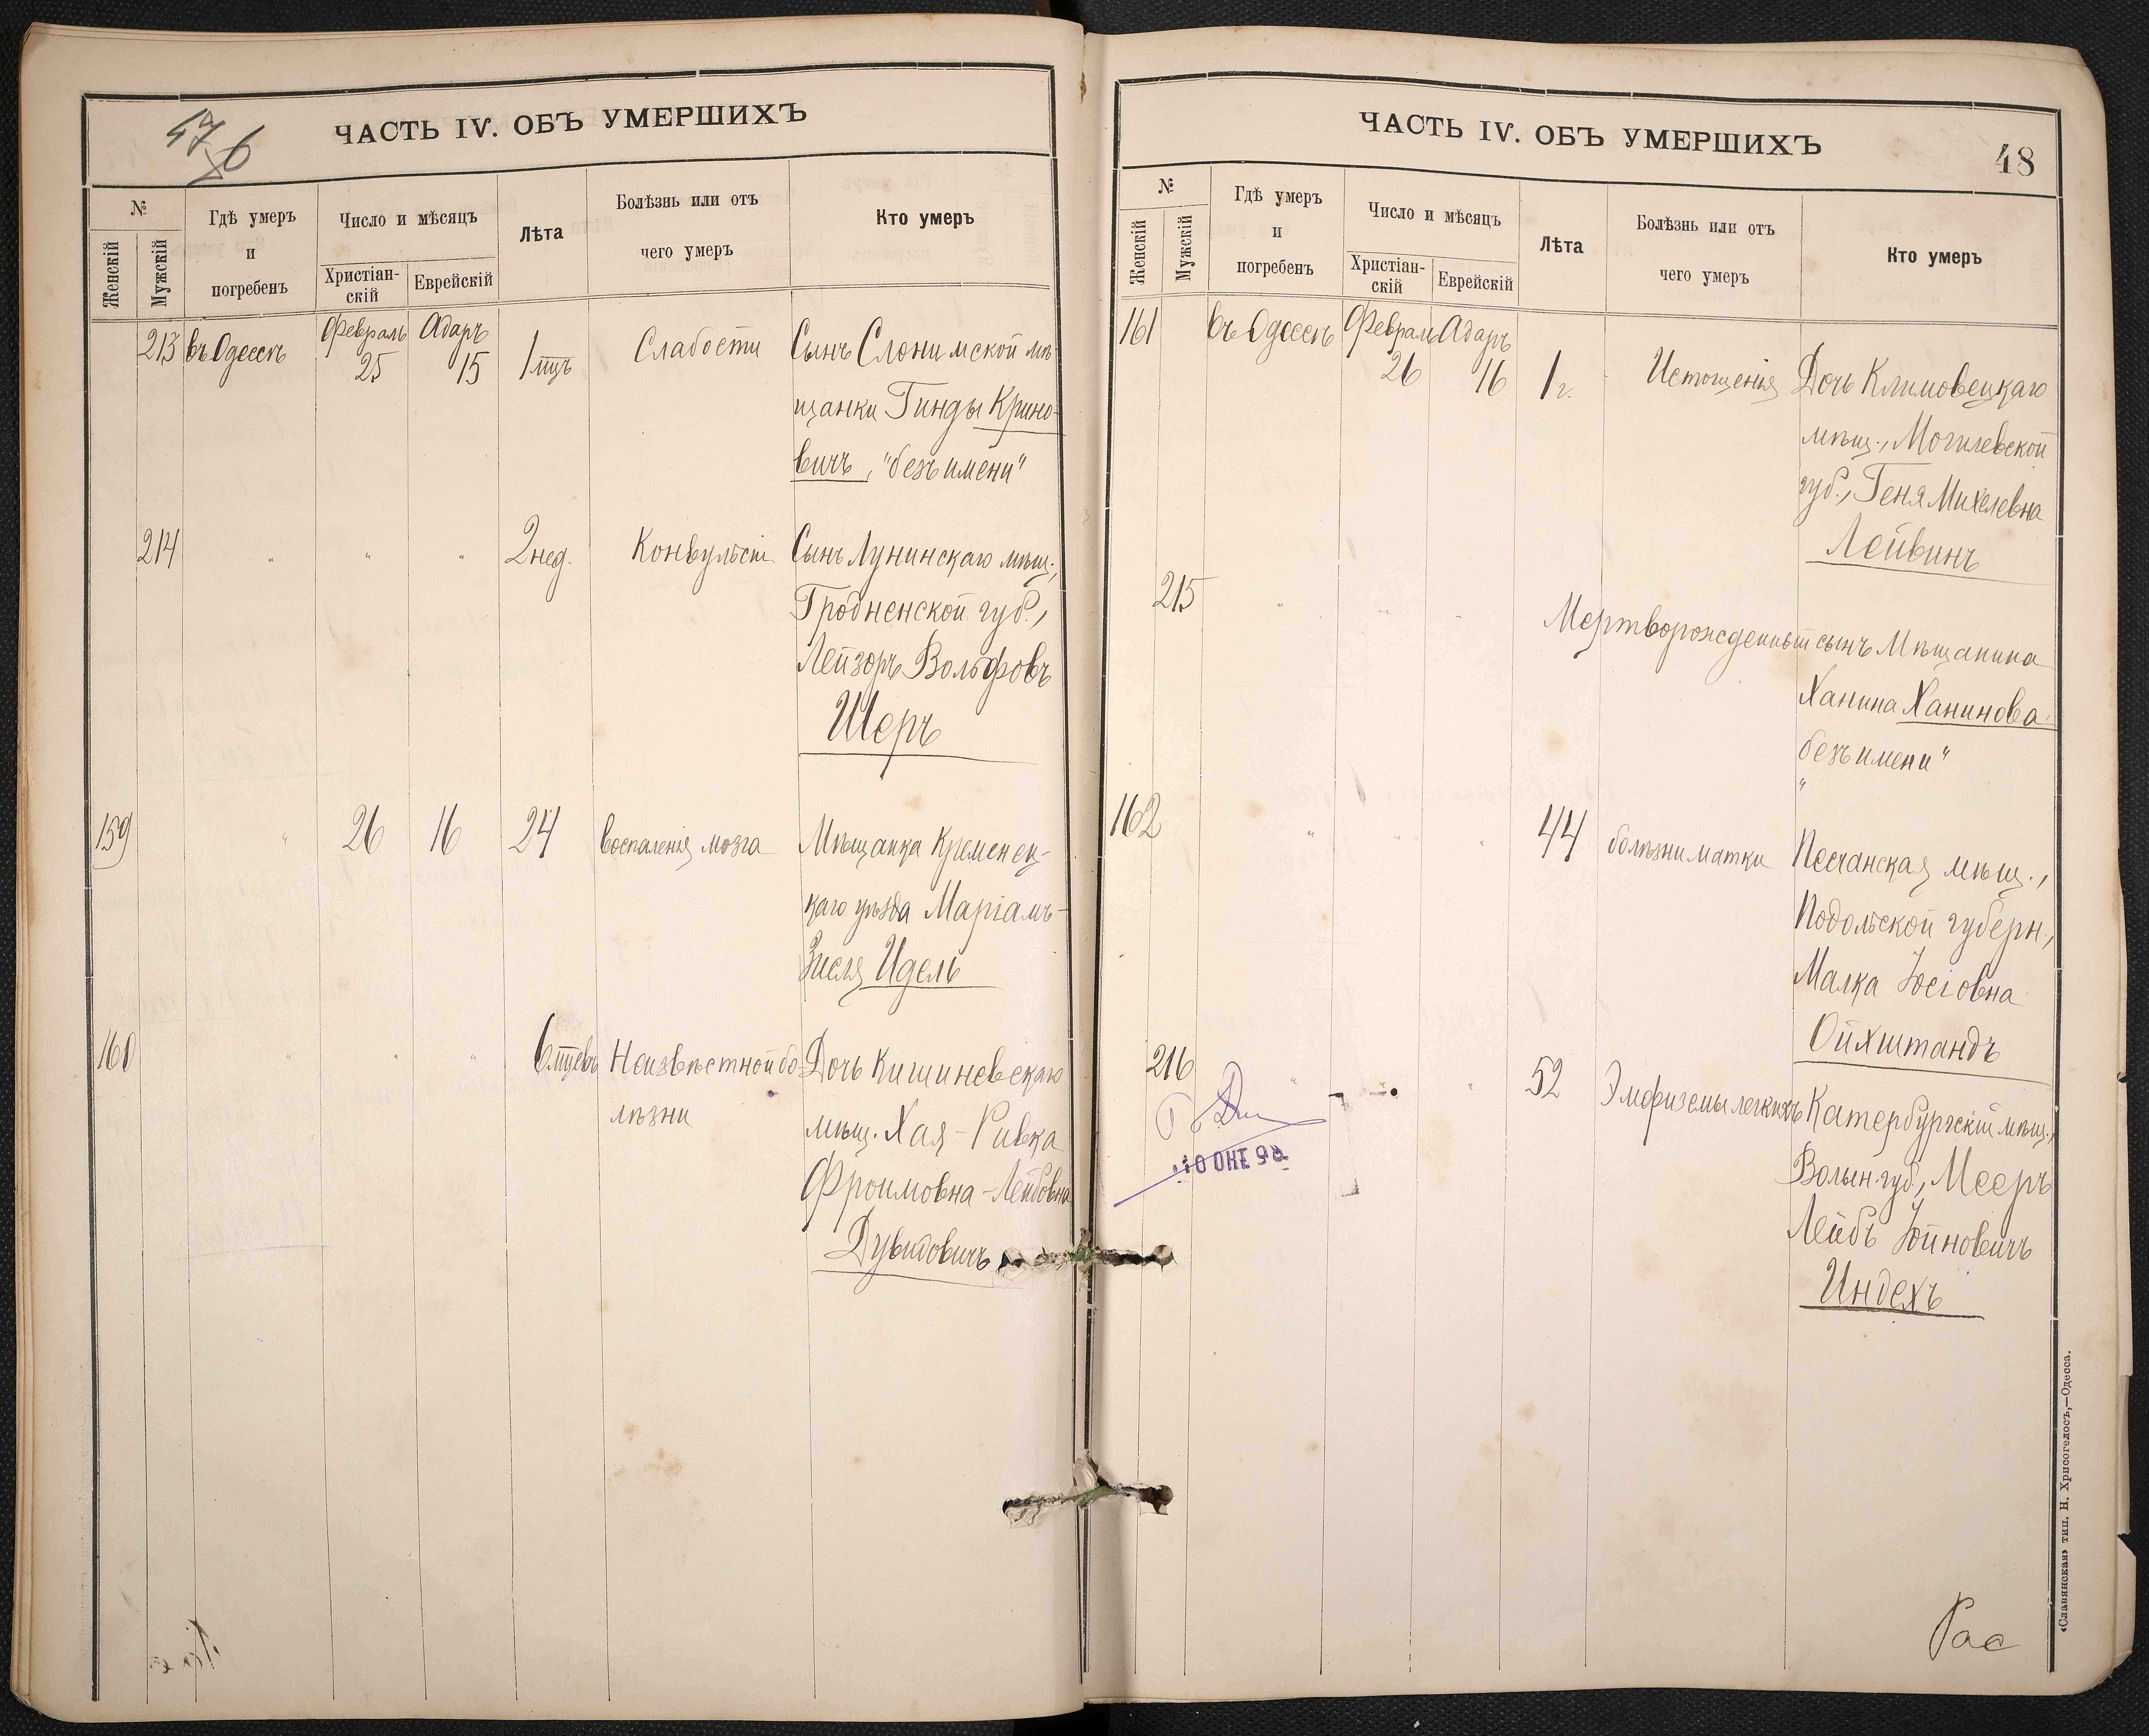 47
6
ЧАСТЬ IV. ОБЪ УМЕРШИХЪ
№
Женскій
Мужскій
Гдѣ умеръ
и
погребенъ
Число и мѣсяцъ
Христіан-
скій
Еврейскій
Лѣта
Болѣзнь или отъ
чего умеръ
Кто умеръ
213 въ Одессѣ Февраль 25 Адаръ 15 1 мцъ Слабости Сынъ Слонимской мѣ-
щанки Гинды Крино-
вичъ, "безъ имени"
214 " " " 2 нед. Конвульсіи Сынъ Лунинскаго мѣщ.,
Гродненской губ.,
Лейзоръ Вольфовъ
Шеръ
159 " 26 16 24 воспаленія мозга Мѣщанка Кременец-
каго уѣзда Маріамъ-
Зисля Идель
160 " " " 6 мцевъ Неизвѣстной бо- Дочь Кишиневскаго
лѣзни мѣщ. Хая-Ривка
Фроимовна-Лейбовна
Дувидовичъ
ЧАСТЬ IV. ОБЪ УМЕРШИХЪ
48
№
Женскій
Мужскій
Гдѣ умеръ
и
погребенъ
Число и мѣсяцъ
Христіан-
скій
Еврейскій
Лѣта
Болѣзнь или отъ
чего умеръ
Кто умеръ
161 въ Одессѣ Февраль 26 Адаръ 16 1 г. Истощенія Дочь Климовецкаго
мѣщ., Могилевской
губ., Геня Михелевна
Лейвинъ
215 " " " Мертворожденный сынъ Мѣщанина
Ханина Ханинова
"безъ имени"
162 " " " 44 болѣзни матки Песчанская мѣщ.,
Подольской губерн.,
Малка Іосіовна
Ойхштандъ
216 " " " 52 Эмфиземы легкихъ Катербургскій мѣщ.,
Волын. губ., Мееръ
Лейбъ Іойновичъ
Индехъ
10 ОКТ 98
Рас
«Славянская» тип. Н. Хрисогелосъ,—Одесса.